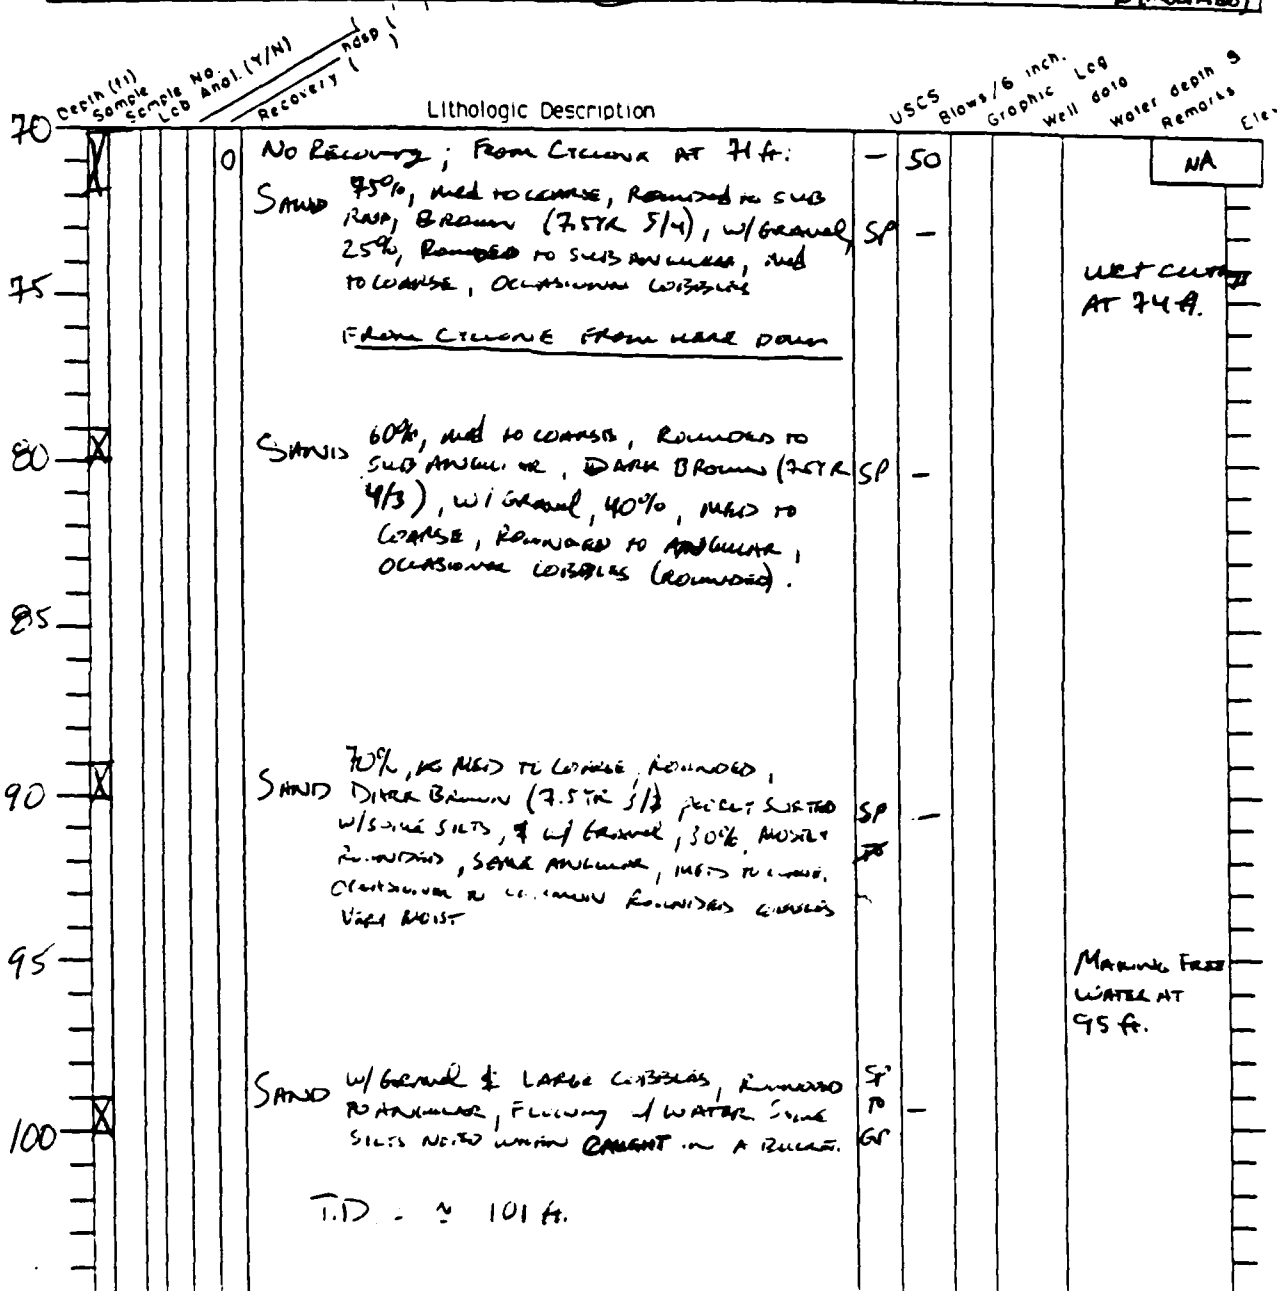 Depth (ft)
Sample
Sample No.
Lab Anal. (Y/N)
Recovery ( )
Lithologic Description
USCS
Blows/6 inch.
Graphic Log
Well data
Water depth
Remarks
Elev
70
0 No Recovery; From Cyclone at 71 ft. - 50 NA
Sand 75%, med to coarse, Rounded to sub
Rnd, Brown (7.5YR 5/4), w/ gravel, SP -
25%, Rounded to subangular, med
75 to coarse, occasional cobbles
wet cutt
at 74 ft.
From Cyclone from here down
80
Sand 60%, med to coarse, Rounded to
sub angular, Dark Brown (7.5YR SP -
4/3), w/ gravel, 40%, med to
coarse, Rounded to angular,
occasional cobbles (rounded).
85
90
Sand 70%, med to coarse, rounded,
Dark Brown (7.5YR 3/ sorted SP -
w/some silts, & w/ gravel, 30%, mostly
rounded, some angular, med to coarse.
occasional to common rounded cobbles
Very moist
95
Making Free
water at
95 ft.
Sand w/ gravel & large cobbles, rounded SP
to angular, flowing w/ water some to -
100 silts noted when caught in a bucket. GP
T.D. - ~ 101 ft.